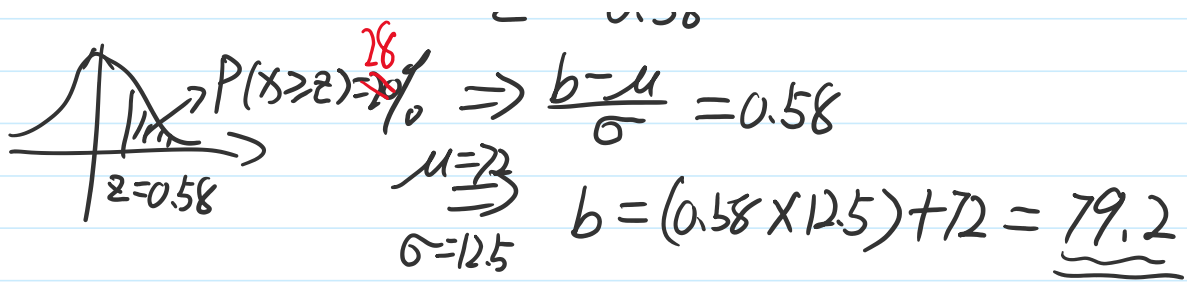 z = 0.58
P(X≥z)=28% ⇒ (b-μ)/σ = 0.58
z=0.58
μ=72
σ=12.5
⇒ b=(0.58×12.5)+72=79.2